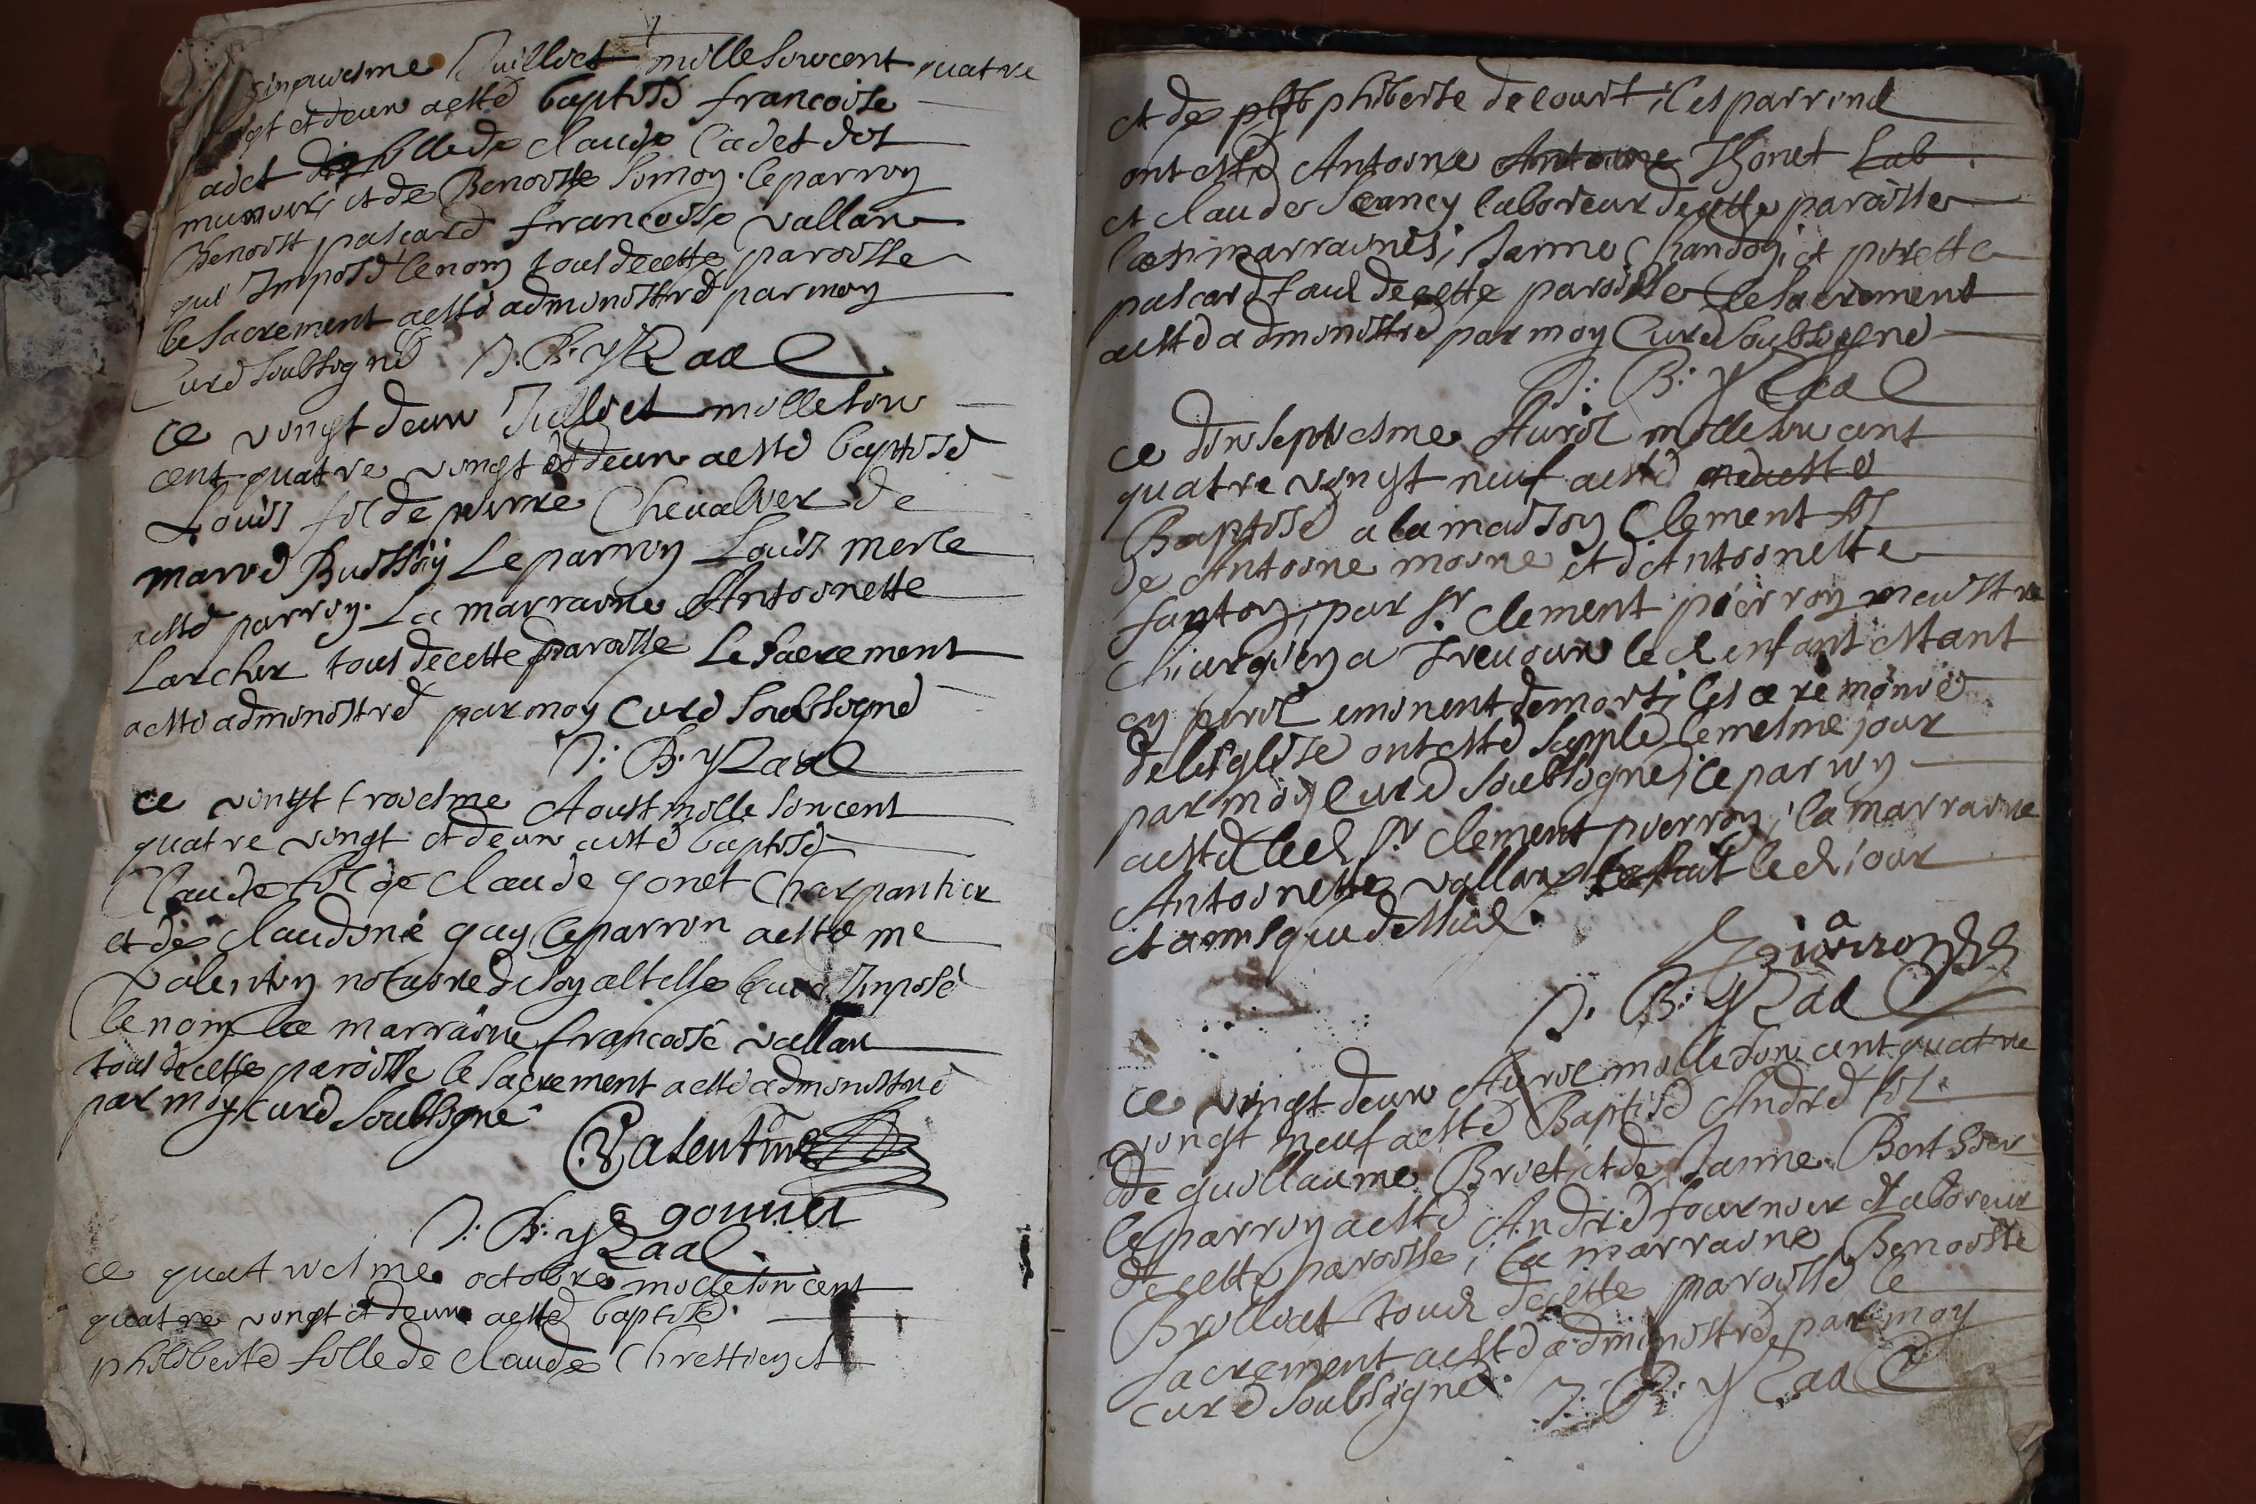 cinquiesme Juilliet mille six cent quatre
vingt et deux a esté baptisé francoise
Cadet fille de Claude Cadet dit
et de Benoiste le parrin
Benoist pascard francoise vallan
qui Imposé le nom tous de cette paroisse
le Sacrement a esté administré par moy
Curé soubsigné J: B: yzaac
Ce vingt deux Juillet mille six
cent quatre vingt et deux a esté baptisé
Louis fil de pierre Chevalier de
Le parrin Louis merle
a esté parrin. La marraine Antoinette
Larcher tous de cette paroisse Le Sacrement
a esté administré par moy Curé soubsigné
J: B: yzaac
Ce vingt troiesme Aoust mille six cent
quatre vingt et deux a esté baptisé
Claude fil de Claude gonet Charpantier
et de Claudine guy le parrin a esté me
Valentin notaire de soy altesse luy a Imposé
le nom la marraine francoise vallan
tous de cette paroisse le Sacrement a esté administré
par moy curé soubsigné
Valentin
gonnet
J: B: yzaac
Ce quattriesme octobre mille six cent
quatre vingt et deux a esté baptisé
philiberte fille de Claude Chrettien et
et de philiberte decourt; les parrins
ont esté Antoine Antoine Thonet Lab
et Claude laboreur de cette paroisse
les marraines; Janne Chandon et pierette
pascard tous de cette paroisse le Sacrement
a esté administré par moy Curé soubsigné
J: B: yzaac
Ce dixseptiesme Avril mille six cent
quatre vingt neuf a esté
Baptisé a la maison Clement fil
de Antoine moine et d'Antoinette
fanton, par Sr. Clement pierron meistre
Chiurgien a Trevoux led enfant estant
en peril eminent de mort; les ceremonies
de l'église ont esté supplé le mesme jour
par moy Curé soubsigné; le parrin
a esté led Sr Clement pierron; la marraine
Antoinette vallan fait led jour
et an que dessus.
pierron
J: B: yzaac
Ce vingt deux Avril mille six cent quatre
vingt neuf a esté Baptisé André fil
de guillaume Briet et de Janne Berthier
le parrin a esté André fournier Laboreur
de cette paroisse; la marraine Benoiste
Brulliat tous de cette paroisse le
Sacrement a esté administré par moy
curé soubsigné. J: B: yzaac